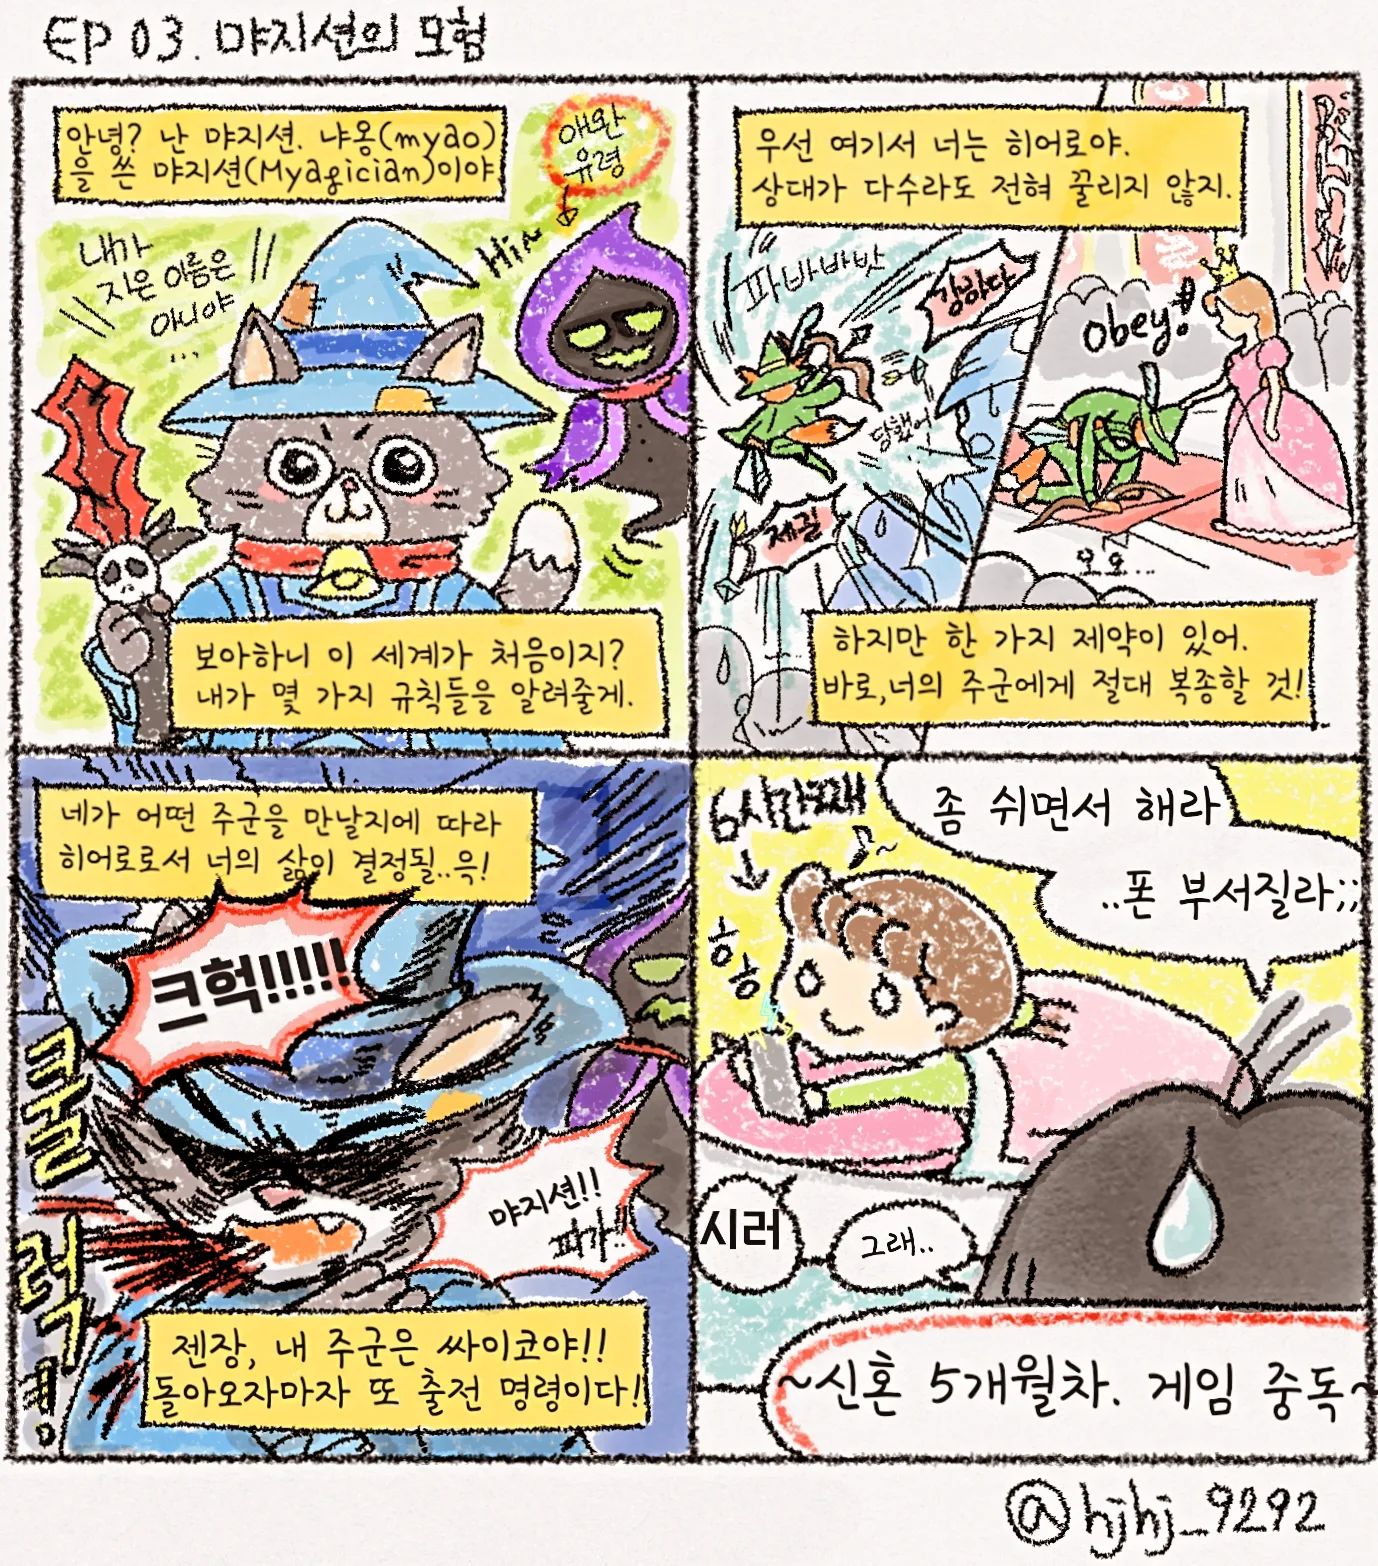 EP 03. 먀지션의 모험
안녕? 난 먀지션. 냐옹(myao)
을 쓴 먀지션(Myagician)이야
애완
유령
내가
지은 이름은
아니야
...
Hi~
보아하니 이 세계가 처음이지?
내가 몇 가지 규칙들을 알려줄게.
우선 여기서 너는 히어로야.
상대가 다수라도 전혀 꿀리지 않지.
파바바밧
강하다
당했어
제길
obey!
오오...
하지만 한 가지 제약이 있어.
바로,너의 주군에게 절대 복종할 것!
네가 어떤 주군을 만날지에 따라
히어로로서 너의 삶이 결정될..윽!
크헉!!!!!
쿨
럭!!
먀지션!!
피가!!
젠장, 내 주군은 싸이코야!!
돌아오자마자 또 출전 명령이다!
6시간째
흐응
좀 쉬면서 해라
..폰 부서질라;;
시러
그래..
~신혼 5개월차. 게임 중독~
@hjhj_9292